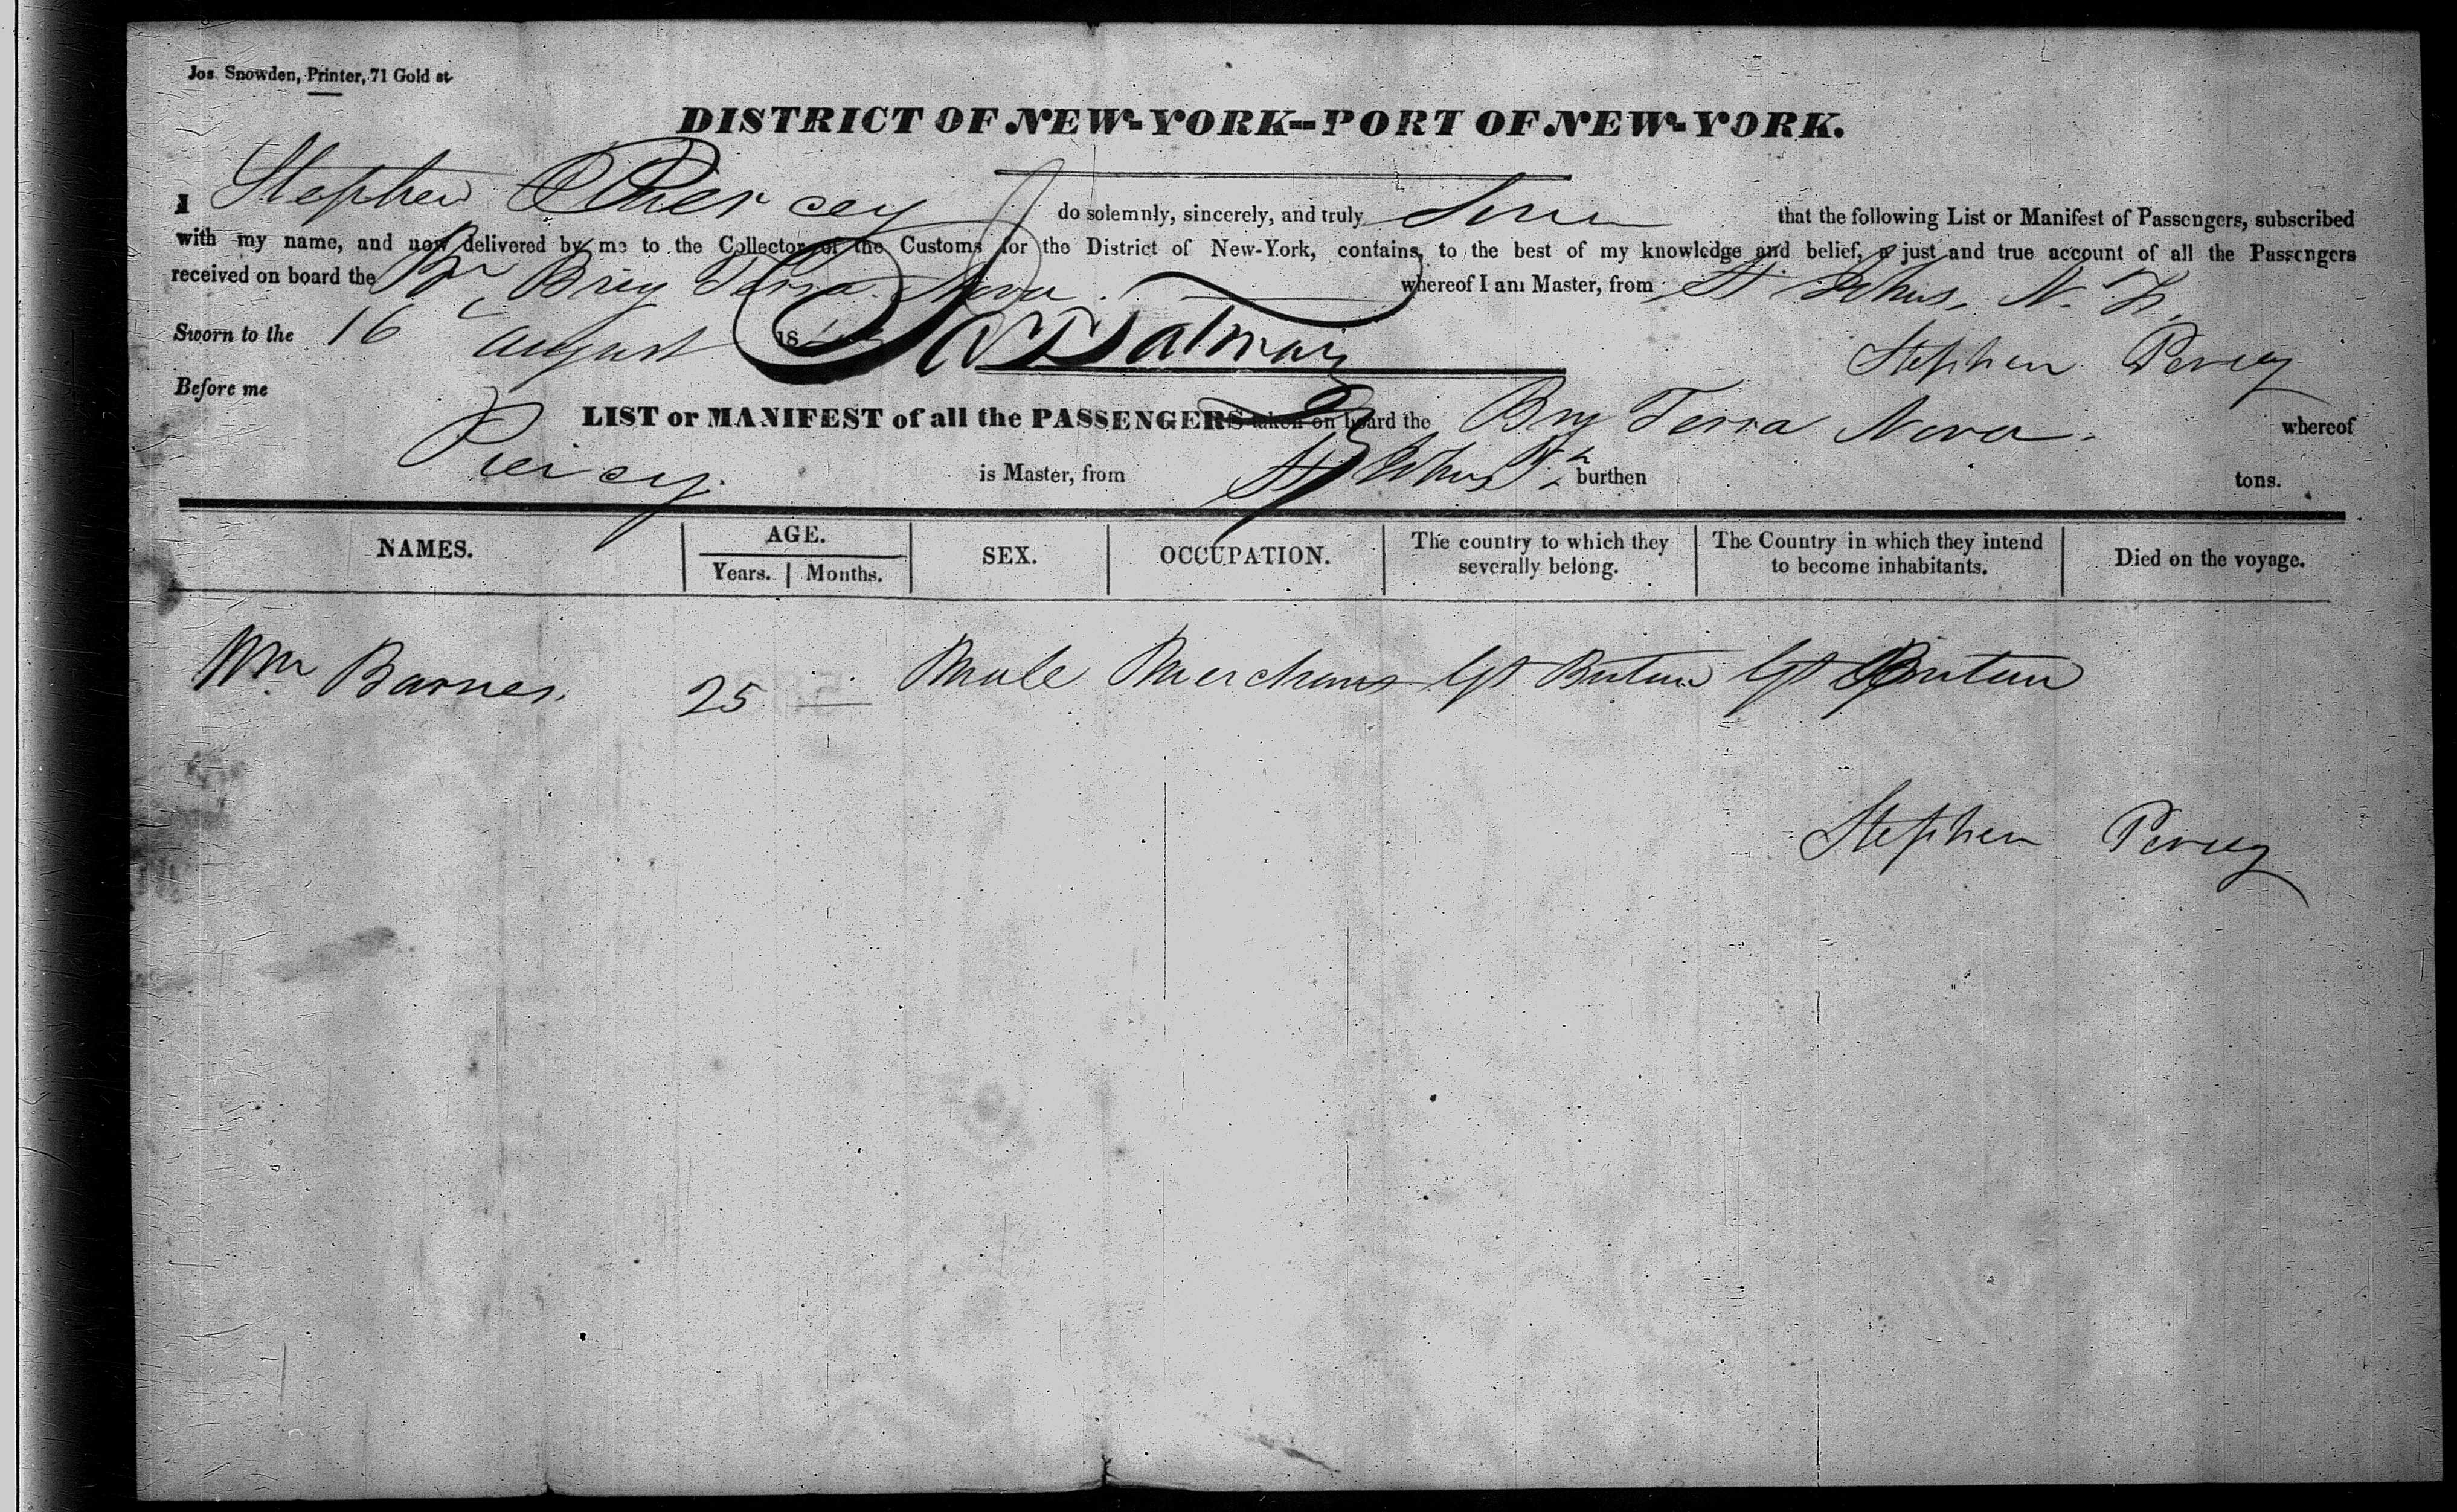 Jos. Snowden, Printer, 71 Gold st.
DISTRICT OF NEW-YORK--PORT OF NEW-YORK.
I Stephen Piercey do solemnly, sincerely, and truly that the following List or Manifest of Passengers, subscribed
with my name, and now delivered by me to the Collector of the Customs for the District of New-York, contains, to the best of my knowledge and belief, a just and true account of all the Passengers
received on board the Br Brig Terra Nova whereof I am Master, from St Johns, N. F.
Sworn to the 16 August 18
Stephen Percey
Before me
LIST or MANIFEST of all the PASSENGERS taken on board the Brig Terra Nova. whereof
Piercy. is Master, from St Johns burthen tons.
NAMES. AGE. SEX. OCCUPATION. The country to which they severally belong. The Country in which they intend to become inhabitants. Died on the voyage.
Years. Months.
Wm Barnes. 25 Male Merchant Gt Britain Gt Britain
Stephen Percey